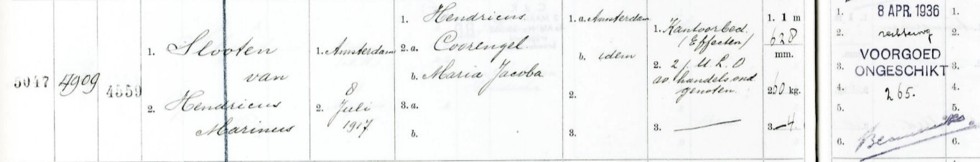 5047 4909 4559
1. Slooten
van
2. Hendricus
Marinus
1. Amsterdam
2. 8
Juli
1917
1. Hendricus
2. a. Coerengel
b. Maria Jacoba
3. a.
b.
1. a. Amsterdam
b. idem
2.
3.
1. Kantoorbed.
(Effecten)
2. 2 j. U L O
ao. handels ond
genoten
3. —
1. 1 m
628
mm.
2. 50 kg.
3. — 4
1.
2.
3.
4.
5.
6.
8 APR. 1936
VOORGOED
ONGESCHIKT
265.
1.
2.
3.
4.
5.
6.